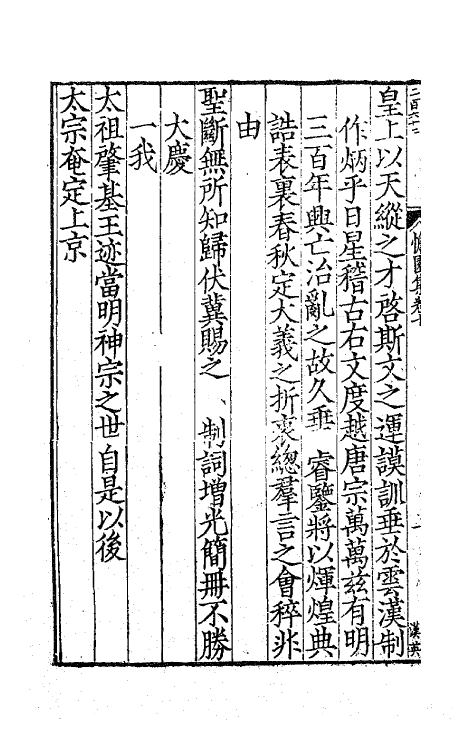 皇上以天縱之才啓斯文之運謨訓垂於雲漢制
作炳乎日星稽古右文度越唐宗萬萬茲有明
三百年興亡治亂之故久垂　睿鑒將以煇煌典
誥表裏春秋定大義之折衷總羣言之會稡非由
聖斷無所知歸伏冀賜之　制詞增光簡冊不勝
大慶
一我
太祖肇基王迹當明神宗之世自是以後
太宗奄定上京